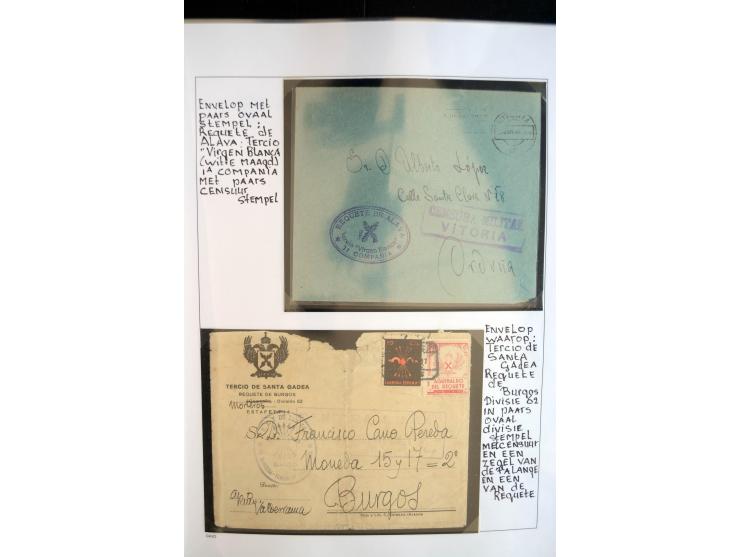 ENVELOP MET
PAARS OVAAL
STEMPEL:
REQUETE DE
ALAVA: TERCIO
"VIRGEN BLANCA
(WITTE MAAGD)
1A COMPANIA
MET PAARS
CENSUUR
STEMPEL
Sr. D. Alberto Lopez
Calle Santa Clara Nº 18
REQUETE DE ALAVA
Tercio "Virgen Blanca"
1ª COMPAÑIA
CENSURA MILITAR
VITORIA
Orduña
ENVELOP
WAAROP:
TERCIO DE
SANTA
GADEA
REQUETE
DE
BURGOS
DIVISIE 62
IN PAARS
OVAAL
DIVISIE
STEMPEL
MET CENSUUR
EN EEN
ZEGEL VAN
DE FALANGE
EN EEN
VAN DE
REQUETE
TERCIO DE SANTA GADEA
REQUETE DE BURGOS
División 62
Morteros
ESTAFETA
AGUINALDO
DEL REQUETE
Sr. D. Francisco Cano Pereda
Moneda 15 y 17 = 2º
Burgos
Valderrama